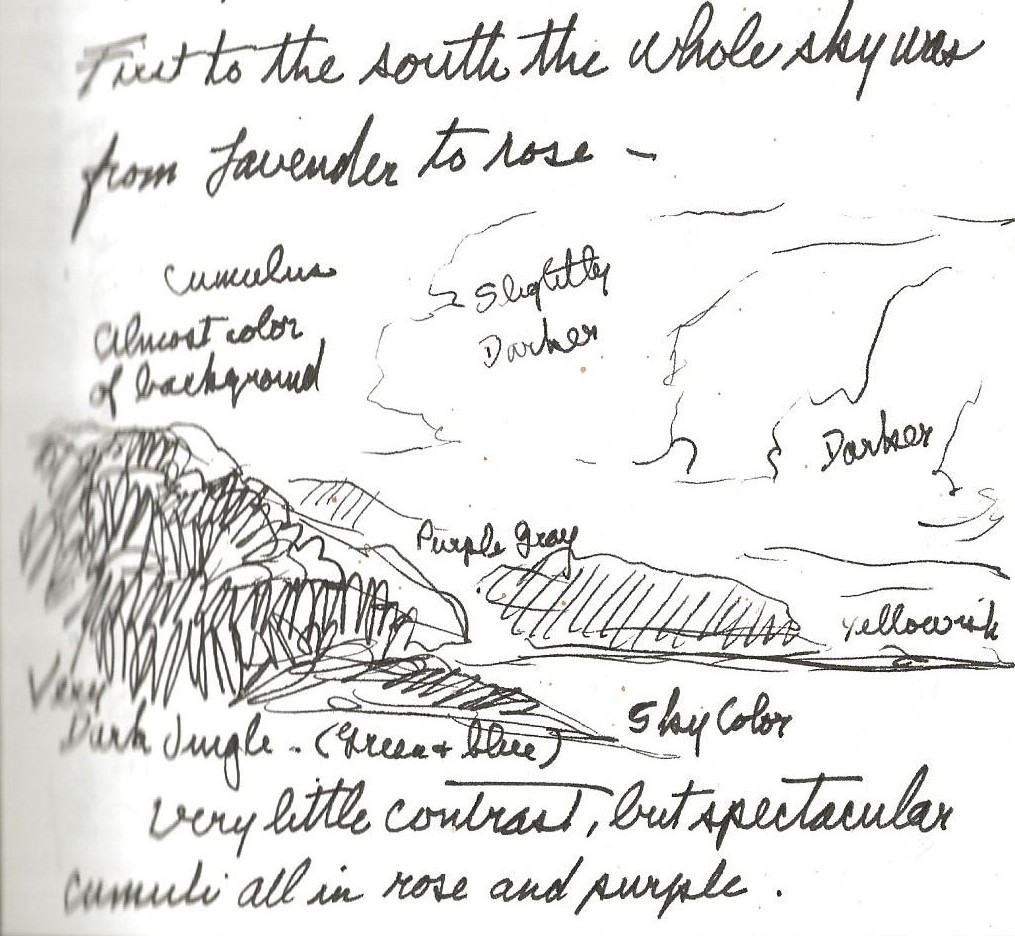 First to the south the whole sky was
from Lavender to rose –
Cumulus
Almost color
of background
Slightly
Darker
Darker
Purple Gray
Yellowish
Very
Dark Jungle - (Green + blue)
Sky Color
Very little contrast, but spectacular
cumuli all in rose and purple.